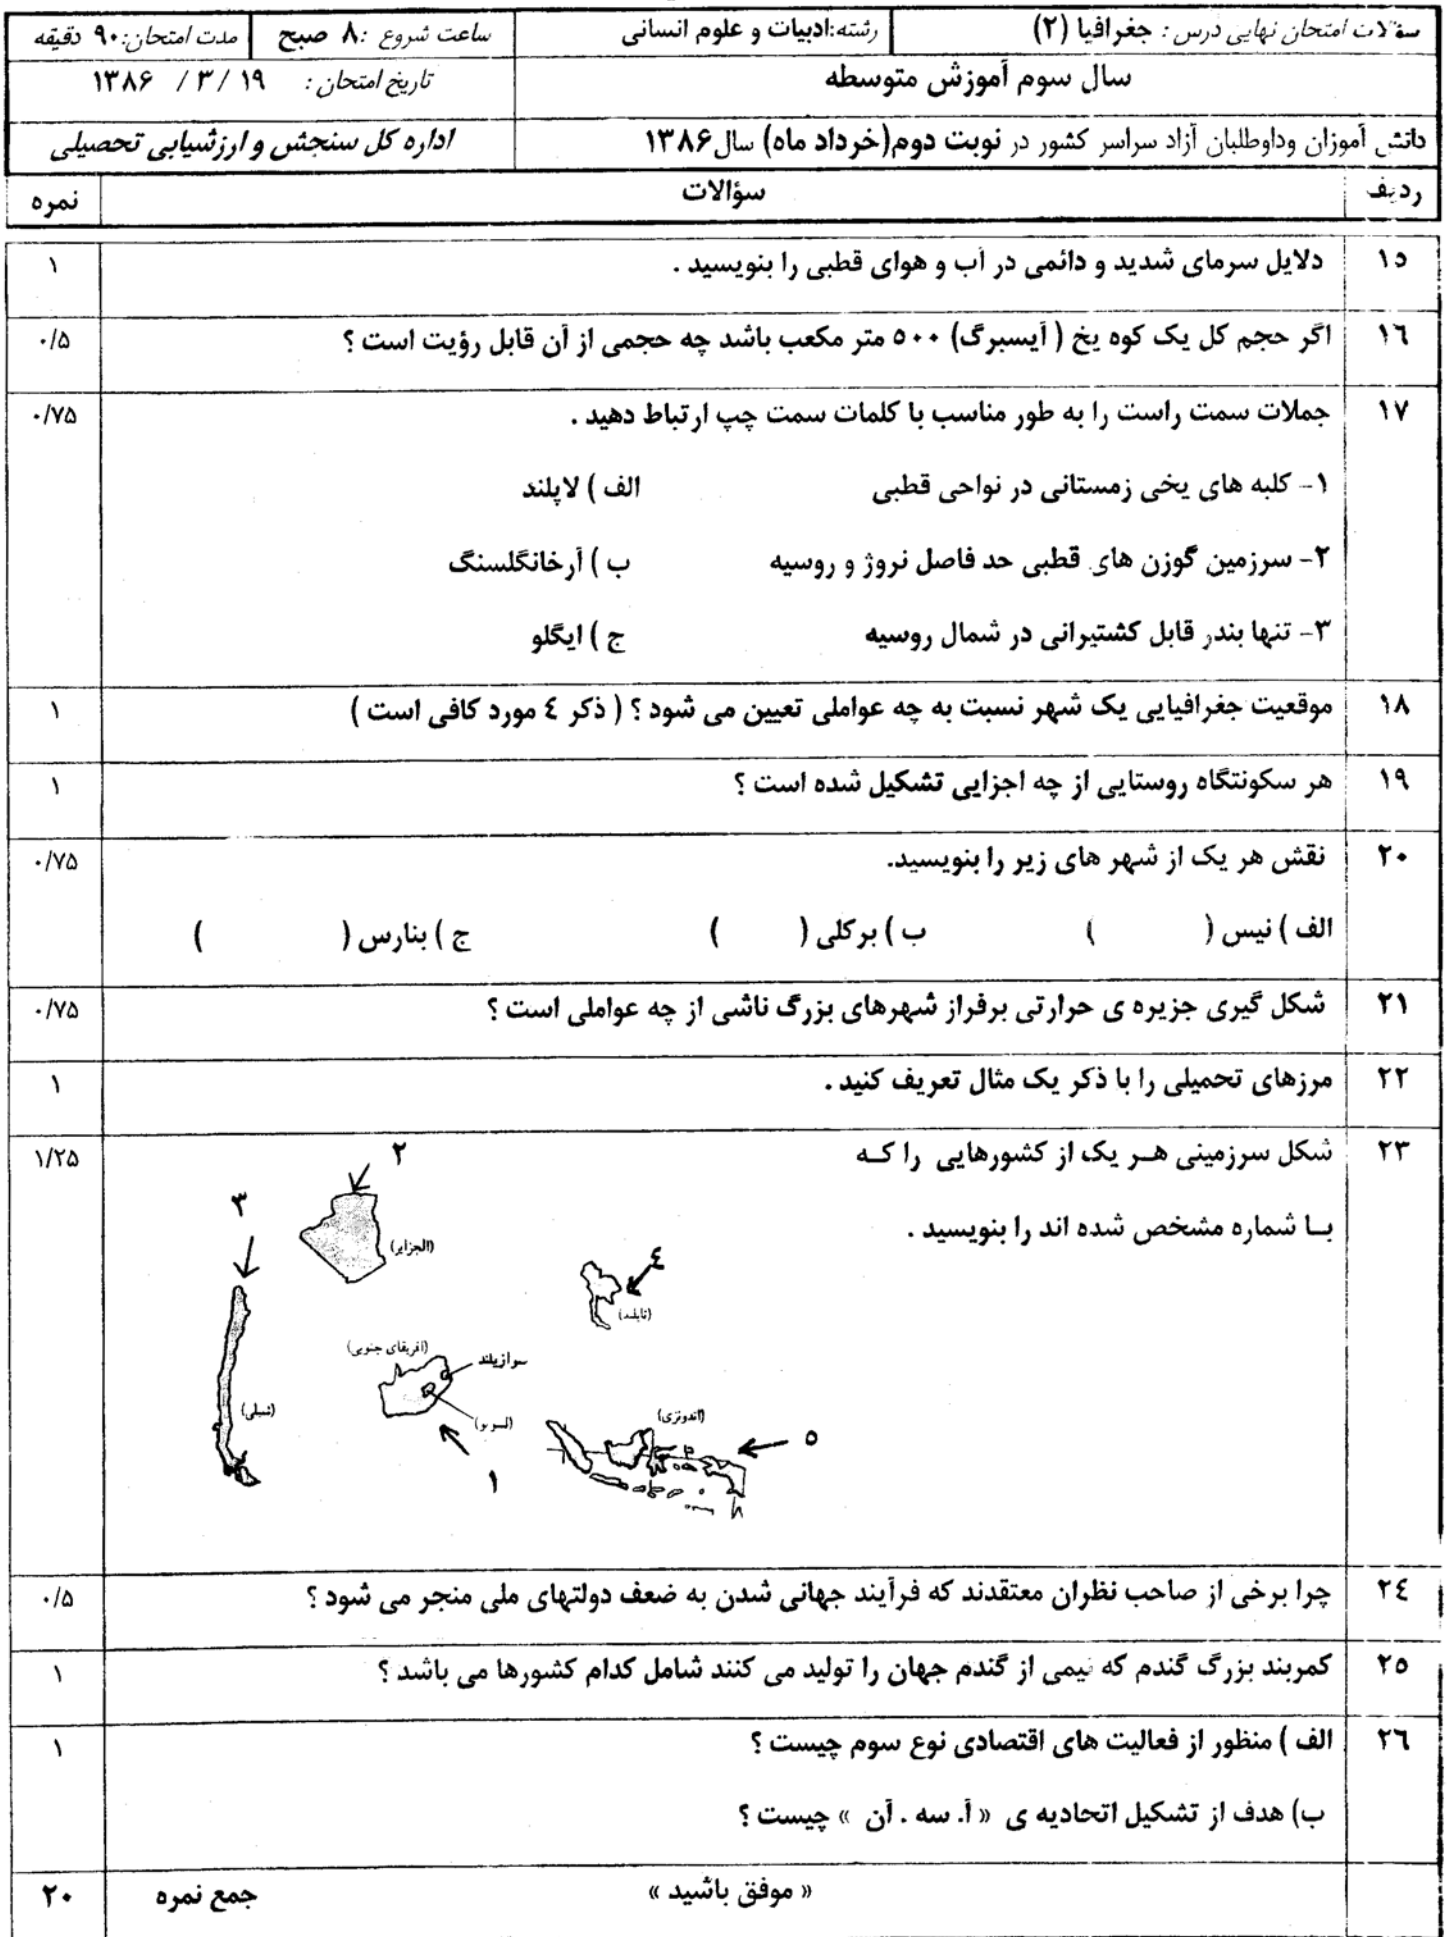 سؤالات امتحان نهایی درس : جغرافیا (۲) رشته:ادبیات و علوم انسانی ساعت شروع :۸ صبح مدت امتحان:۹۰ دقیقه
سال سوم آموزش متوسطه تاریخ امتحان : ۱۹ / ۳ / ۱۳۸۶
دانش آموزان وداوطلبان آزاد سراسر کشور در نوبت دوم(خرداد ماه) سال۱۳۸۶ اداره کل سنجش و ارزشیابی تحصیلی
ردیف سؤالات نمره
۱۵ دلایل سرمای شدید و دائمی در آب و هوای قطبی را بنویسید . ۱
۱۶ اگر حجم کل یک کوه یخ ( آیسبرگ) ۵۰۰ متر مکعب باشد چه حجمی از آن قابل رؤیت است ؟ ۰/۵
۱۷ جملات سمت راست را به طور مناسب با کلمات سمت چپ ارتباط دهید . ۰/۷۵
۱- کلبه های یخی زمستانی در نواحی قطبی الف ) لاپلند
۲- سرزمین گوزن های قطبی حد فاصل نروژ و روسیه ب ) آرخانگلسنگ
۳- تنها بندر قابل کشتیرانی در شمال روسیه ج ) ایگلو
۱۸ موقعیت جغرافیایی یک شهر نسبت به چه عواملی تعیین می شود ؟ ( ذکر ٤ مورد کافی است ) ۱
۱۹ هر سکونتگاه روستایی از چه اجزایی تشکیل شده است ؟ ۱
۲۰ نقش هر یک از شهر های زیر را بنویسید. ۰/۷۵
الف ) نیس ( ) ب ) برکلی ( ) ج ) بنارس ( )
۲۱ شکل گیری جزیره ی حرارتی برفراز شهرهای بزرگ ناشی از چه عواملی است ؟ ۰/۷۵
۲۲ مرزهای تحمیلی را با ذکر یک مثال تعریف کنید . ۱
۲۳ شکل سرزمینی هـر یک از کشورهایی را کـه ۱/۲۵
بـا شماره مشخص شده اند را بنویسید .
۲
۳
(الجزایر)
٤
(تایلند)
(افریقای جنوبی)
سوازیلند
(شیلی)
(لسوتو)
(اندونزی)
۵
۱
۲٤ چرا برخی از صاحب نظران معتقدند که فرآیند جهانی شدن به ضعف دولتهای ملی منجر می شود ؟ ۰/۵
۲۵ کمربند بزرگ گندم که نیمی از گندم جهان را تولید می کنند شامل کدام کشورها می باشد ؟ ۱
۲۶ الف ) منظور از فعالیت های اقتصادی نوع سوم چیست ؟ ۱
ب) هدف از تشکیل اتحادیه ی « آ. سه . آن » چیست ؟
« موفق باشید » جمع نمره ۲۰